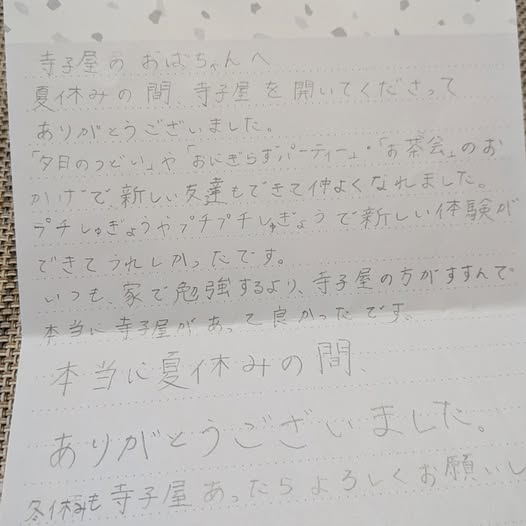 寺子屋のおばちゃんへ
夏休みの間、寺子屋を開いてくださって
ありがとうございました。
「夕日のつどい」や「おにぎらずパーティー」・「お茶会」のお
かげで、新しい友達もできて仲よくなれました。
プチしゅぎょうやプチプチしゅぎょうで新しい体験が
できてうれしかったです。
いつも、家で勉強するより、寺子屋の方がすすんで
本当に寺子屋があって良かったです。
本当に夏休みの間、
ありがとうございました。
冬休みも寺子屋あったらよろしくお願いし